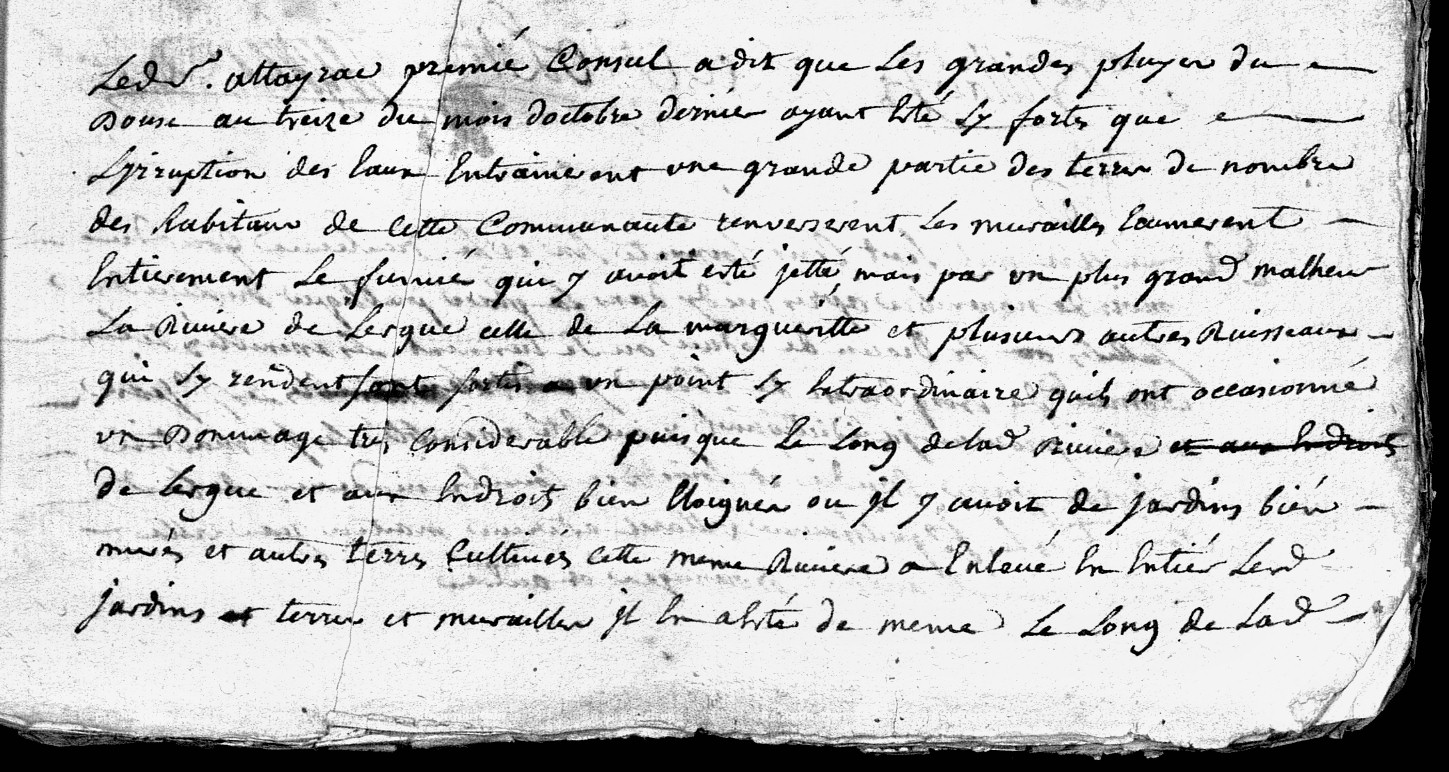 Led Sr. attayrac premié Consul a dit que les grandes pluyes du
Douse au treize du mois doctobre dernier ayant Eté sy fortes que
Lyrruption des Eaux Entrainerent une grande partie des terres de nombre
des habitans de Cette Communauté renverserent les murailles
Entierement le fumié qui y avoit esté jetté, mais par un plus grand malheur
La Riviere de Lergue celle de La margueritte et plusieurs autres Ruisseaux
qui sy rendent sont sortis a un point sy Extraordinaire quils ont occasionné
un Dommage tres Considerable puisque Le Long de lad Riviere et aux Endroits
de Lergue et aux Endroits bien Eloignés ou jl y avoit de jardins bién
murés et autres terres Cultivés cette meme Riviere a Enlevé En Entiér Lesd
jardins et terres et murailles jl En a Eté de meme Le Long de Lad